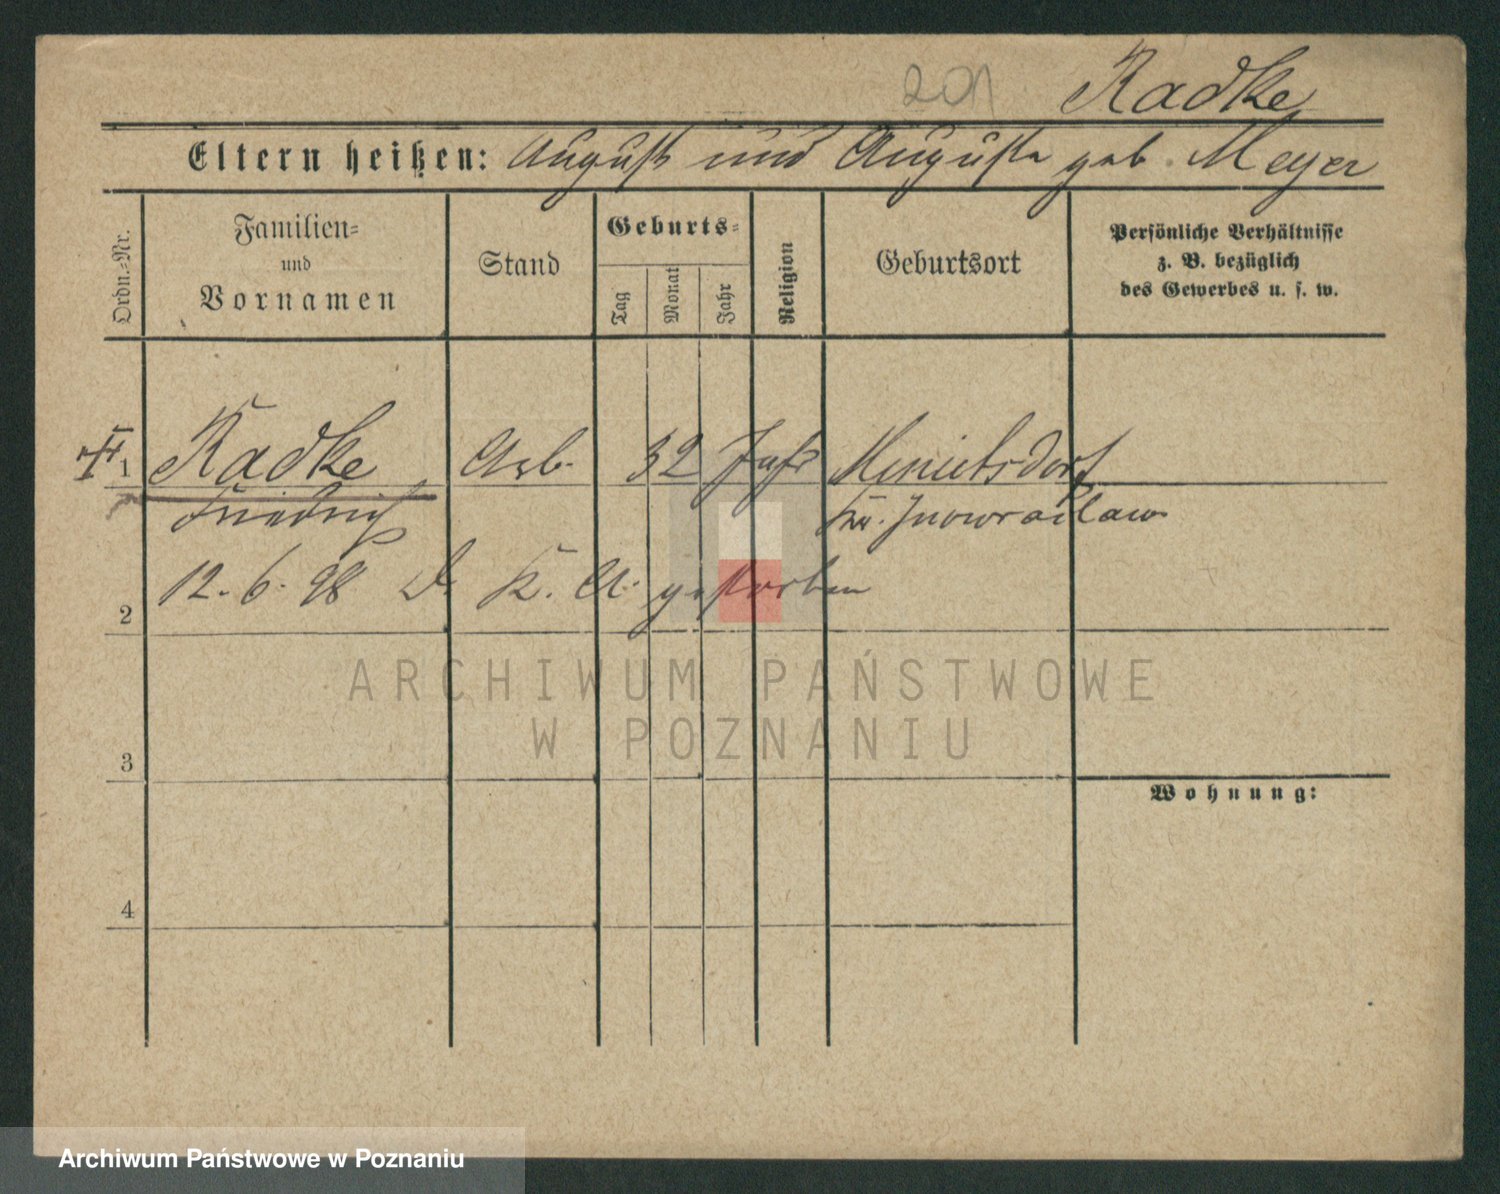 201 Radke
Eltern heißen: August und Auguste geb. Meyer
Ordn.-Nr.
Familien-
und
Vornamen
Stand
Geburts-
Tag
Monat
Jahr
Religion
Geburtsort
Persönliche Verhältnisse
z. B. bezüglich
des Gewerbes u. s. w.
1 Radke Arb. 32 Jahr
Friedrich Kr. Inowrazlaw
12. 6. 98 d. K. A. gestorben
2
ARCHIWUM PAŃSTWOWE
W POZNANIU
3
Wohnung:
4
Archiwum Państwowe w Poznaniu